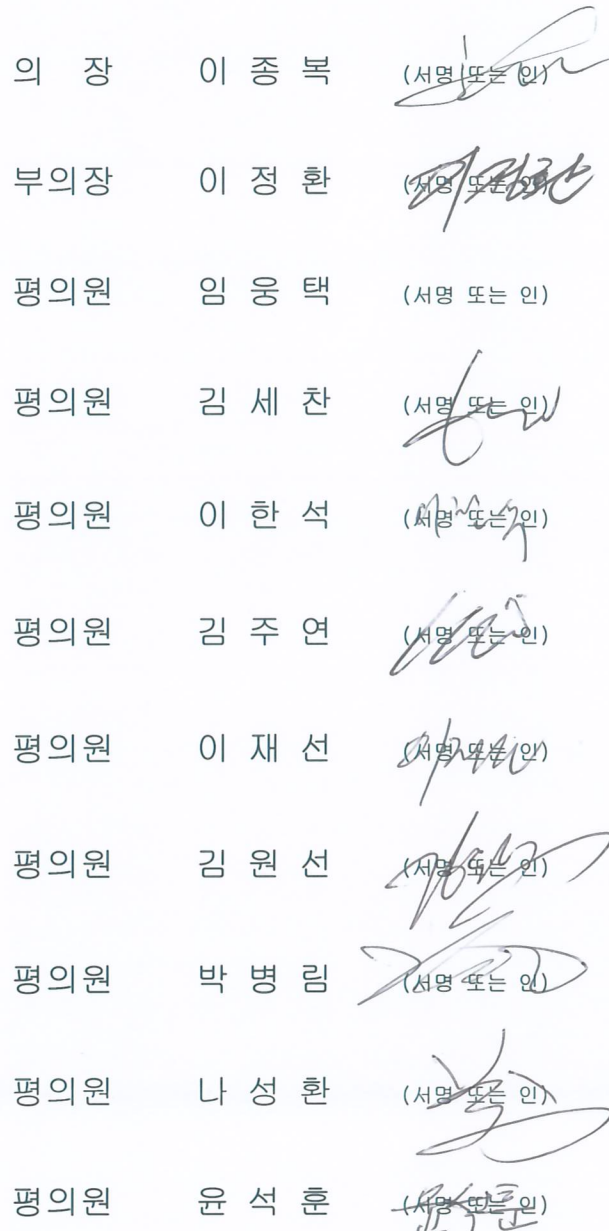 의 장 이 종 복 (서명 또는 인)
부의장 이 정 환 (서명 또는 인)
평의원 임 웅 택 (서명 또는 인)
평의원 김 세 찬 (서명 또는 인)
평의원 이 한 석 (서명 또는 인)
평의원 김 주 연 (서명 또는 인)
평의원 이 재 선 (서명 또는 인)
평의원 김 원 선 (서명 또는 인)
평의원 박 병 림 (서명 또는 인)
평의원 나 성 환 (서명 또는 인)
평의원 윤 석 훈 (서명 또는 인)